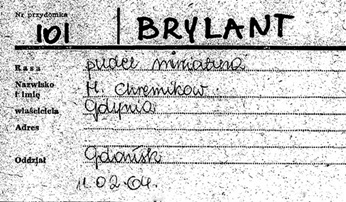 Nr przydomka
101 BRYLANT
Rasa pudel miniatura
Nazwisko
i imię H. Chremikow
właściciela Gdynia
Adres
Oddział Gdańsk
11.02.64.